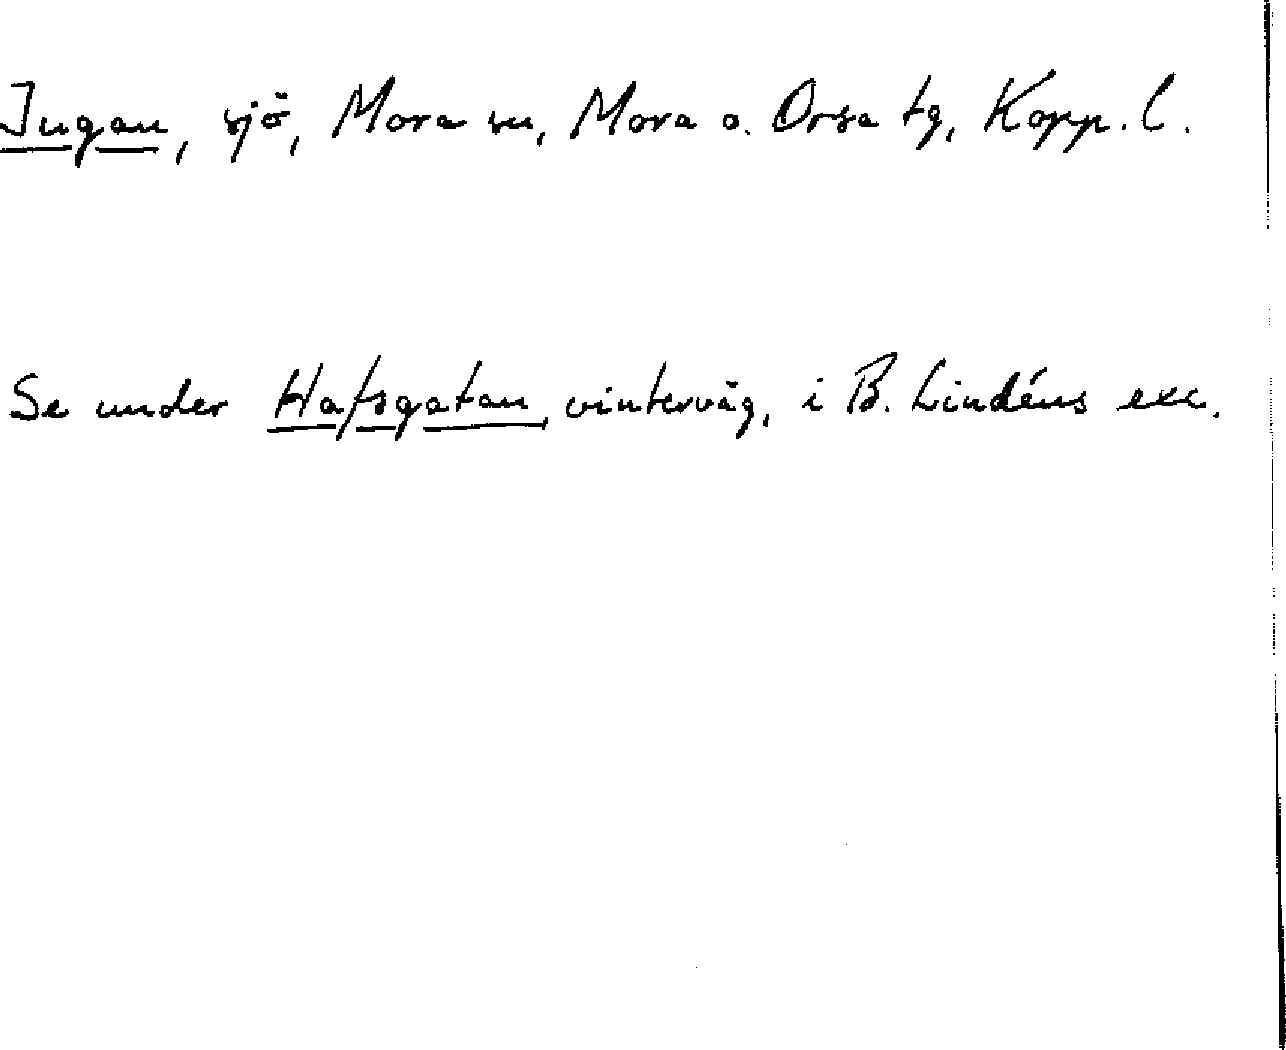 Jugan, sjö, Mora sn, Mora o. Orsa tg, Kopp. l.
Se under Hafsgatan, vinterväg, i B. Lindéns exc.